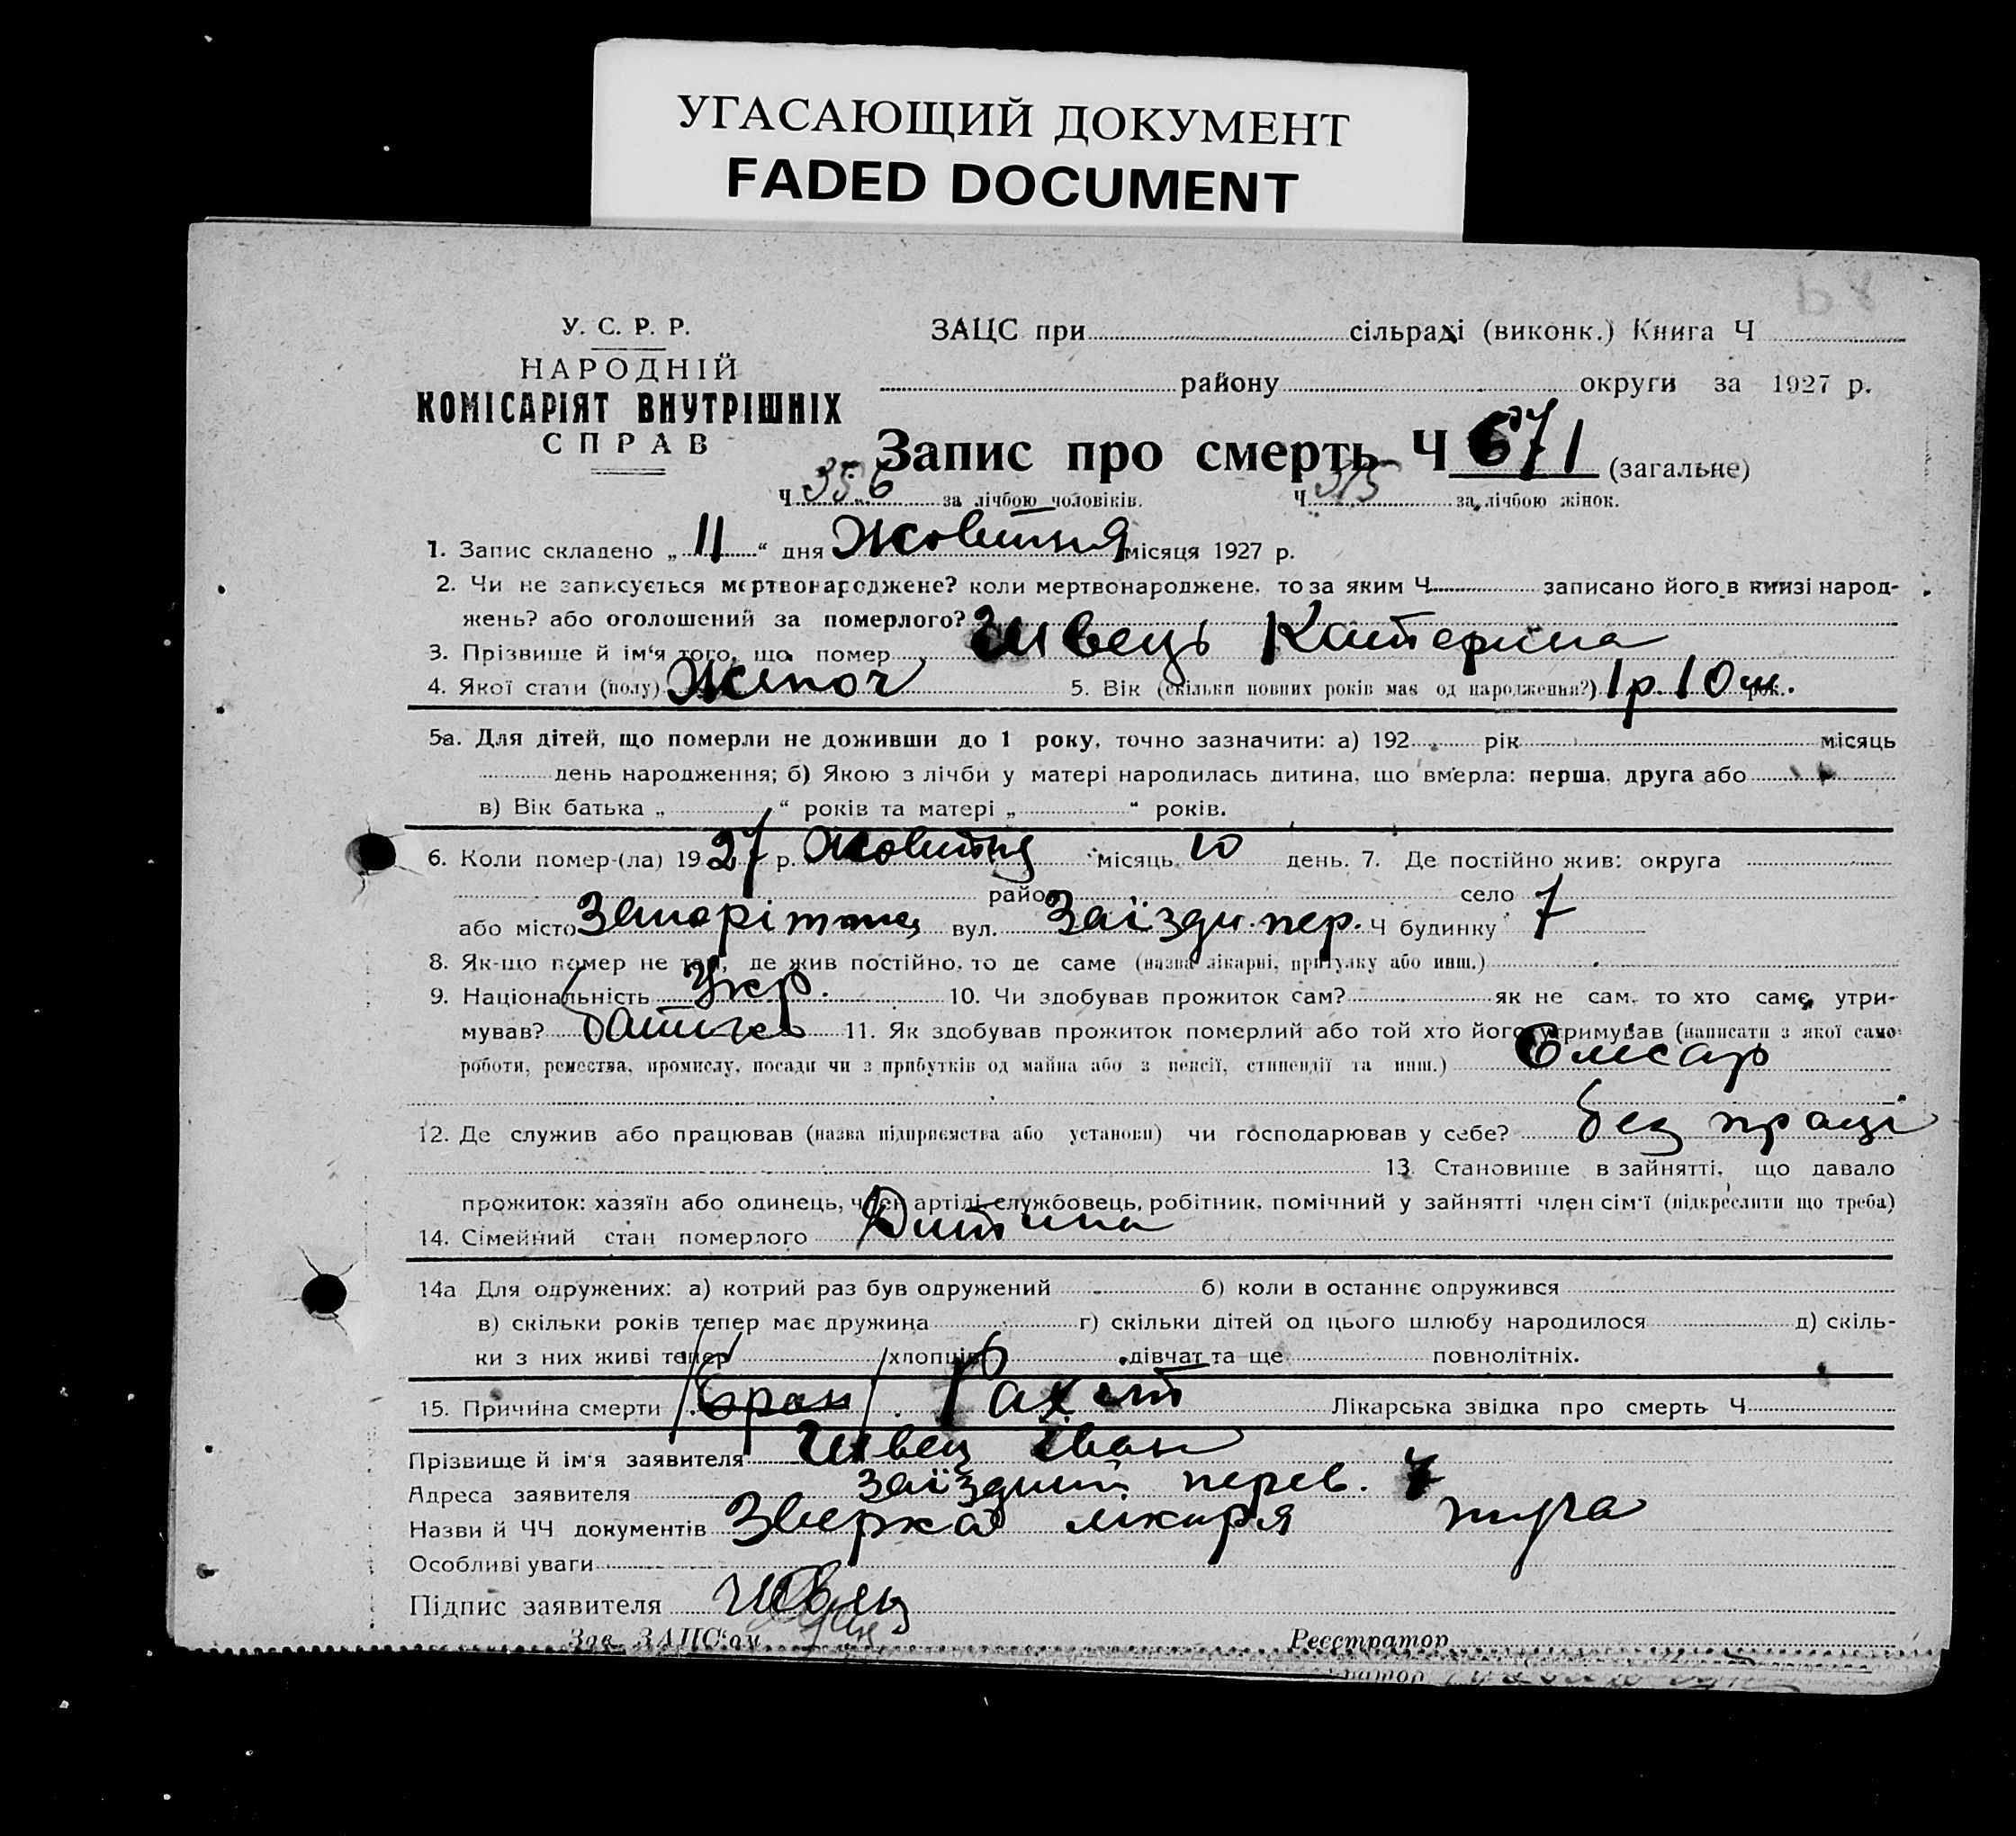 УГАСАЮЩИЙ ДОКУМЕНТ
FADED DOCUMENT
У. С. Р. Р.
НАРОДНІЙ
КОМІСАРІЯТ ВНУТРІШНІХ
СПРАВ
ЗАЦС при сільраді (виконк.) Книга Ч
району округи за 1927 р.
Запис про смерть Ч 671 (загальне)
Ч 356 за лічбою чоловіків. Ч 315 за лічбою жінок.
1. Запис складено „ 11 “ дня Жовтня місяця 1927 р.
2. Чи не записується мертвонароджене? коли мертвонароджене, то за яким Ч записано його в книзі народ-
жень? або оголошений за померлого?
3. Прізвище й ім'я того, що помер Швець Катерина
4. Якої стати (полу) Жіноч 5. Вік (скільки повних років має од народження?) 1 р. 10 м. рок.
5а. Для дітей, що померли не доживши до 1 року, точно зазначити: а) 192 рік місяць
день народження; б) Якою з лічби у матері народилась дитина, що вмерла: перша, друга або
в) Вік батька „ “ років та матері „ “ років.
6. Коли помер-(ла) 1927 р. Жовтня місяць 10 день. 7. Де постійно жив: округа
район село
або місто Запоріжжя вул. Заїздн. пер. Ч будинку 7
8. Як-що помер не там, де жив постійно, то де саме (назва лікарні, притулку або инш.)
9. Національність Укр. 10. Чи здобував прожиток сам? як не сам, то хто саме, утри-
мував? батько 11. Як здобував прожиток померлий або той хто його утримував (написати з якої само
роботи, ремества, промислу, посади чи з прибутків од майна або з пенсії, стипендії та инш.) Слюсар
12. Де служив або працював (назва підприємства або установи) чи господарював у себе? без праці
13. Становище в зайнятті, що давало
прожиток: хазяїн або одинець, член артілі, службовець, робітник, помічний у зайнятті член сім'ї (підкреслити що треба)
14. Сімейний стан померлого Дитина
14а Для одружених: а) котрий раз був одружений б) коли в останнє одружився
в) скільки років тепер має дружина г) скільки дітей од цього шлюбу народилося д) скіль-
ки з них живі тепер хлопців дівчат та ще повнолітніх.
15. Причина смерти Рахіт Лікарська звідка про смерть Ч
Прізвище й ім'я заявителя Швец Іван
Адреса заявителя Заїздний перев. 7
Назви й ЧЧ документів лікаря
Особливі уваги
Підпис заявителя Швец
Зав. ЗАЦС'ом Реєстратор